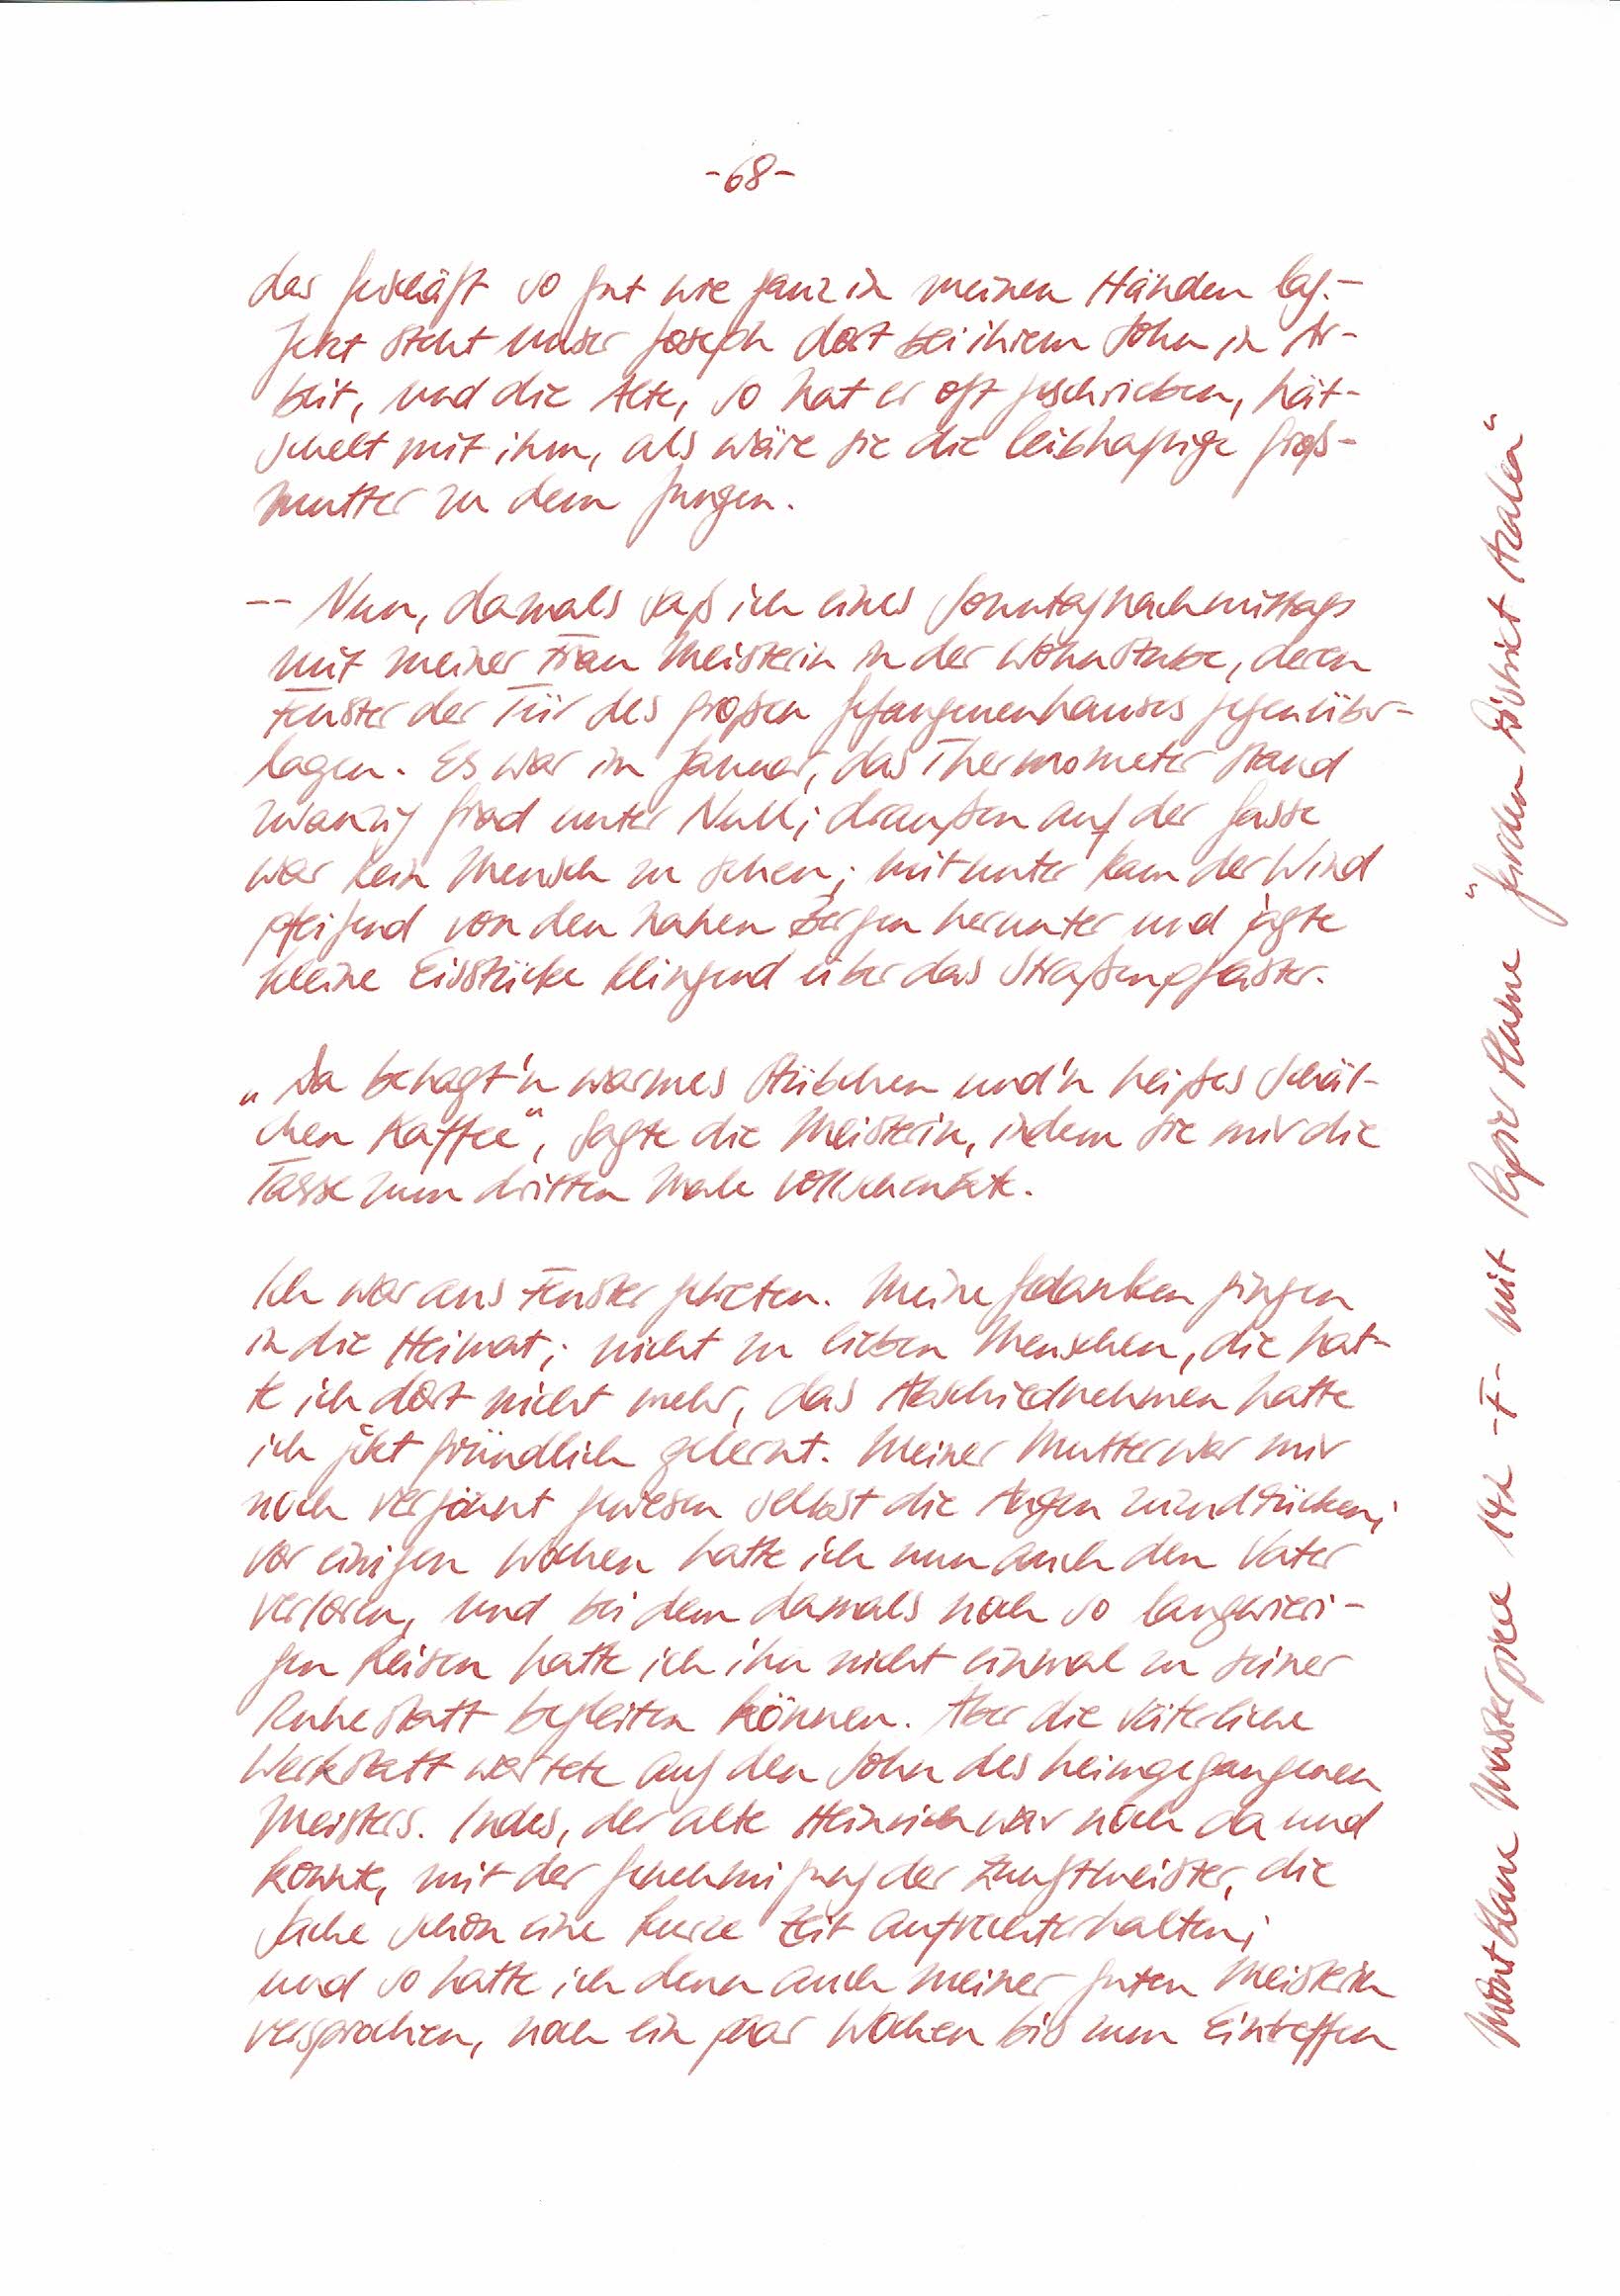 -68-
das Geschäft so gut wie ganz in meinen Händen lag.-
Jetzt steht unser Joseph dort bei ihrem Sohn in Ar-
beit, und die Alte, so hat er oft geschrieben, hät-
schelt mit ihm, als wäre sie die leibhaftige Groß-
mutter zu dem Jungen.
-- Nun, damals saß ich eines Sonntagnachmittags
mit meiner Frau Meisterin in der Wohnstube, deren
Fenster der Tür des großen Gefangenenhauses gegenüber-
lagen. Es war im Januar, das Thermometer stand
zwanzig Grad unter Null; draußen auf der Gasse
war kein Mensch zu sehen; mitunter kam der Wind
pfeifend von den nahen Bergen herunter und jagte
kleine Eisstücke klingend über das Straßenpflaster.
„Da behagt'n warmes Stübchen und'n heißes Schäl-
chen Kaffee“, sagte die Meisterin, indem sie mir die
Tasse zum dritten Male vollschenkte.
Ich war ans Fenster getreten. Meine Gedanken gingen
in die Heimat; nicht zu lieben Menschen, die hat-
te ich dort nicht mehr, das Abschiednehmen hatte
ich jetzt gründlich gelernt. Meiner Mutter war mir
noch vergönnt gewesen selbst die Augen zuzudrücken;
vor einigen Wochen hatte ich nun auch den Vater
verloren, und bei dem damals noch so langwieri-
gen Reisen hatte ich ihn nicht einmal zu seiner
Ruhestatt begleiten können. Aber die väterliche
Werkstatt wartete auf den Sohn des heimgegangenen
Meisters. Indes, der alte Heinrich war noch da und
konnte, mit der Genehmigung der Zunftmeister, die
Sache schon eine kurze Zeit aufrechterhalten;
und so hatte ich denn auch meiner guten Meisterin
versprochen, noch ein paar Wochen bis zum Eintreffen
Montblanc Masterpiece 142 -F- mit Papier Plume "Garden District Azalea"